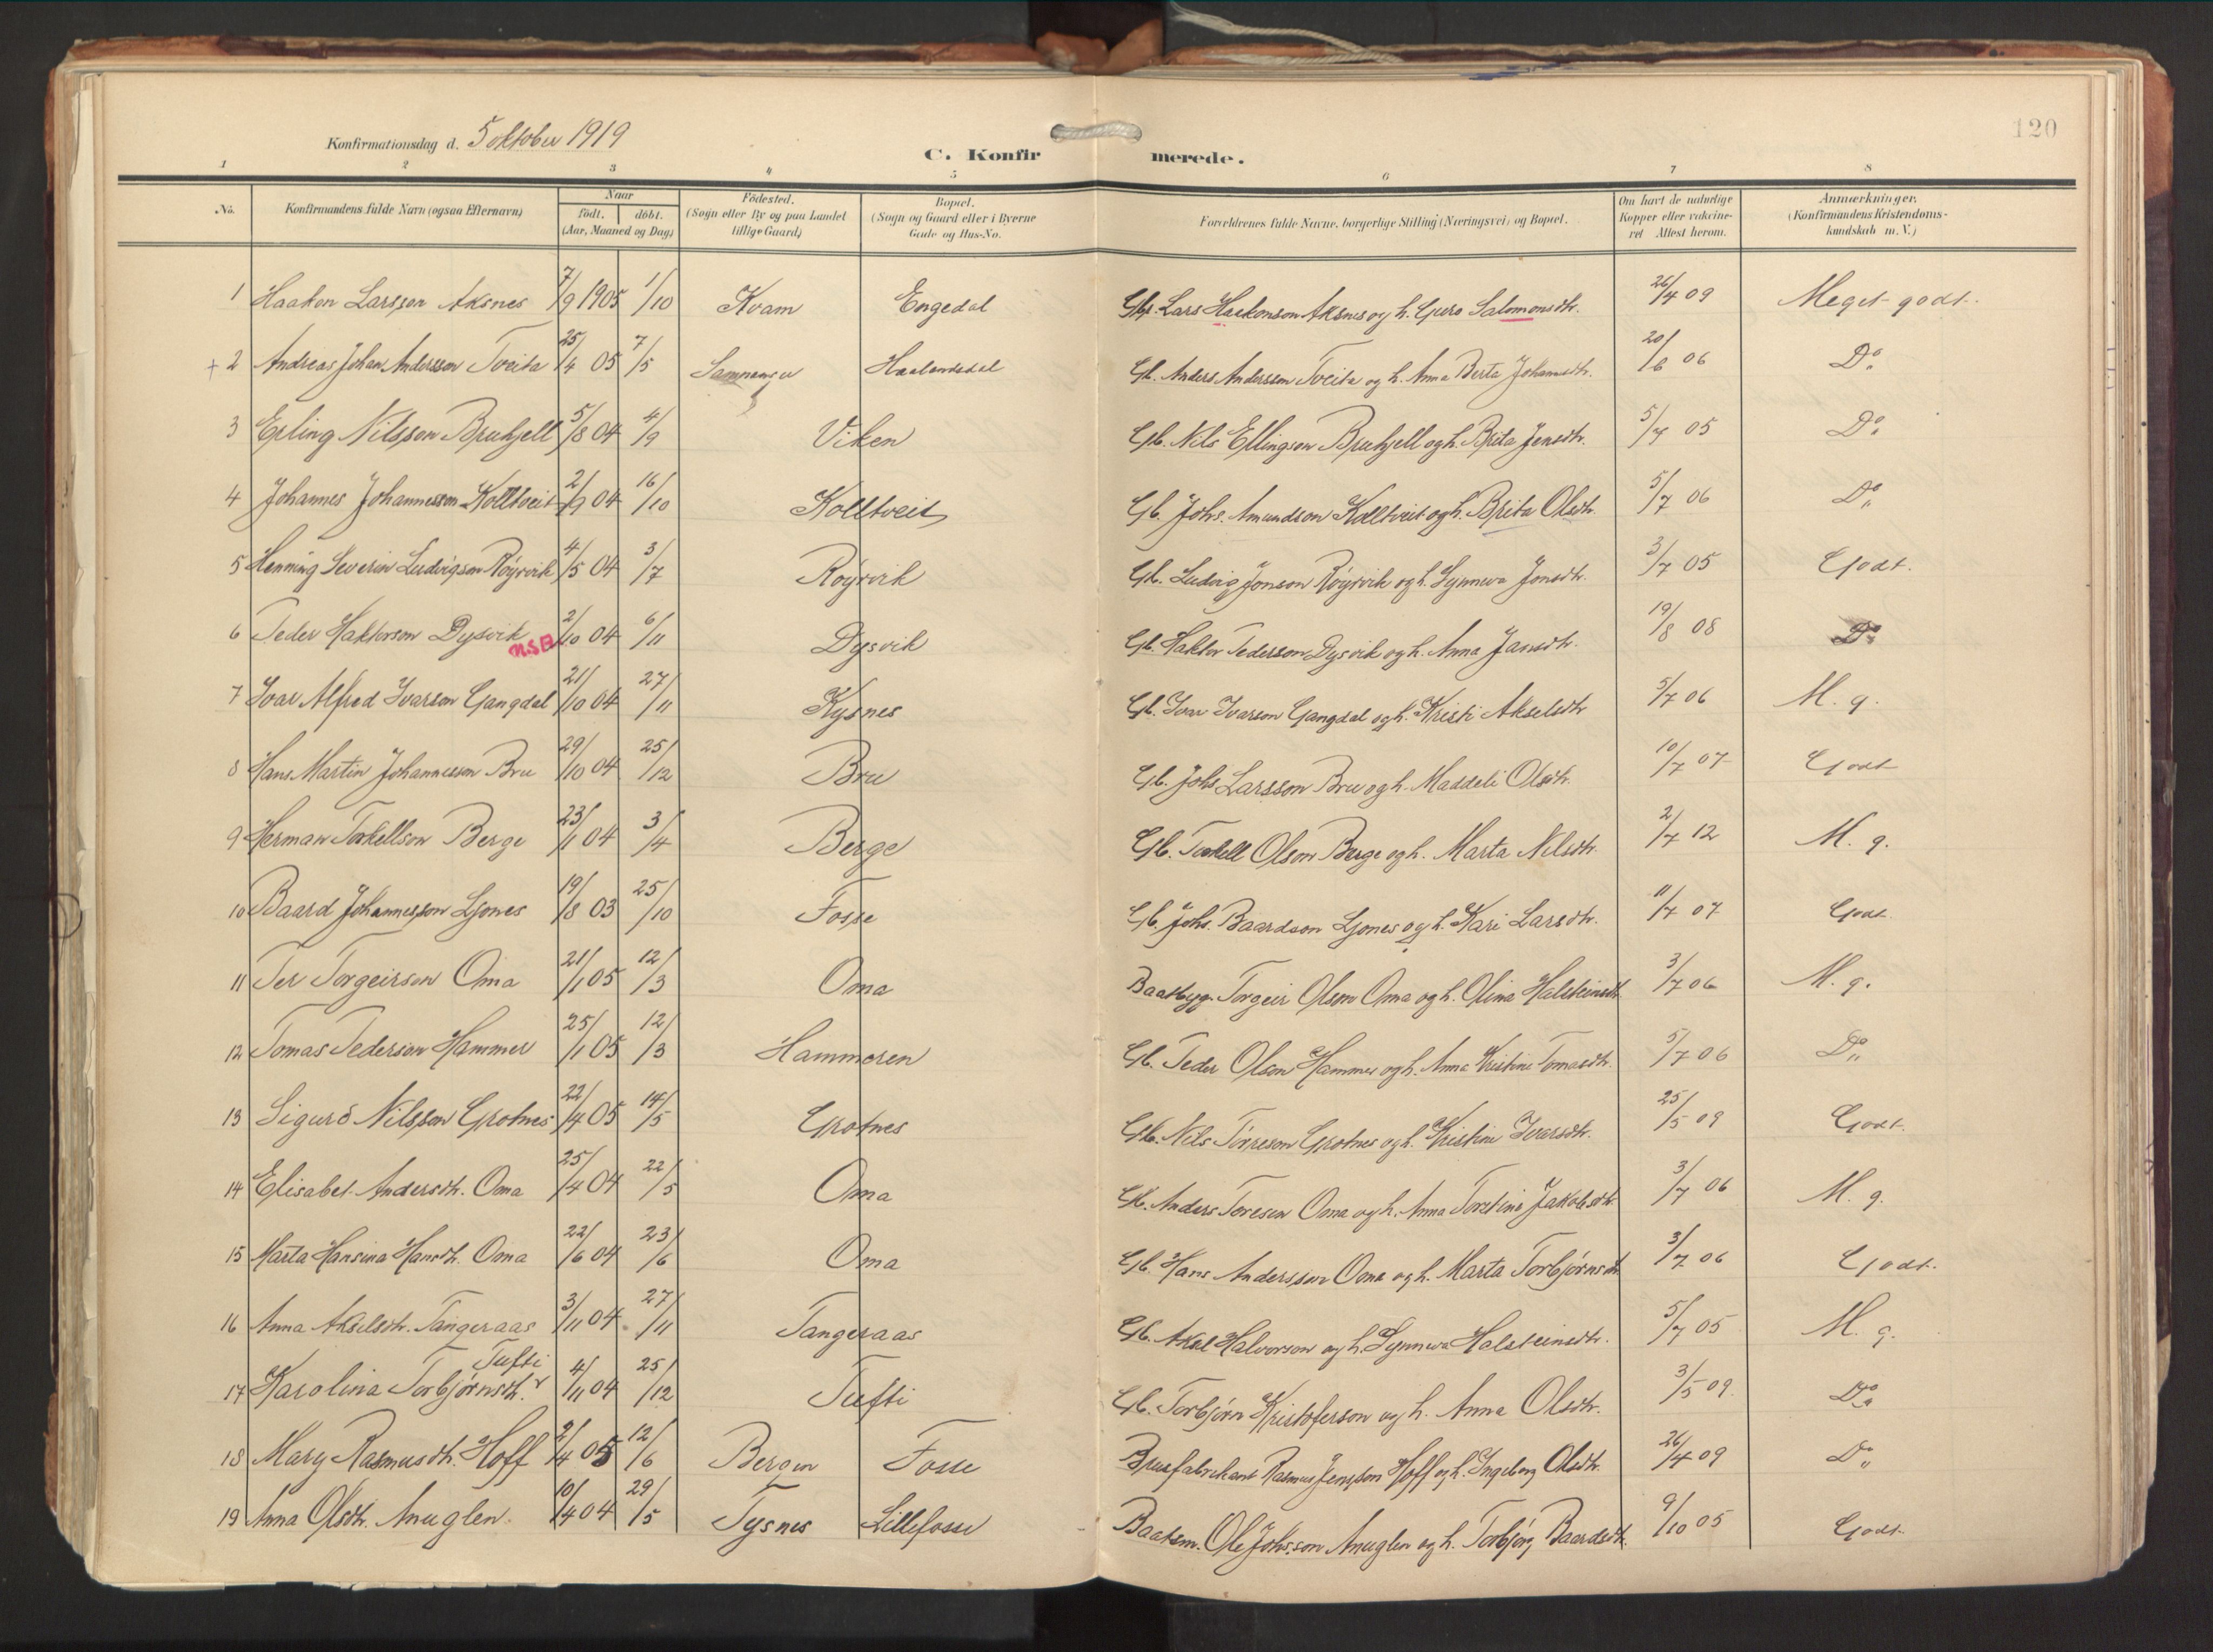 120
Konfirmationsdag d. 5 oktober 1919
C. Konfirmerede.
1 2 3 4 5 6 7 8
No. Konfirmandens fulde Navn (ogsaa Efternavn) Naar født. døbt. (Aar, Maaned og Dag) Fødested. (Sogn eller By og paa Landet tillige Gaard) Bopæl. (Sogn og Gaard eller i Byerne Gade og Hus-No. Forældrenes fulde Navne, borgerlige Stilling (Næringsvei) og Bopæl. Om havt de naturlige Kopper eller vakcineret Attest herom. Anmærkninger. (Konfirmandens Kristendomskundskab m. V.)
1 Haakon Larsson Aksnes 7/9 1905 1/10 Kvam Engedal Gbr. Lars Haakonson Aksnes og h. Guro Salomonsdtr. 26/4 09 Meget godt.
+ 2 Andreas Johan Anderssen Tveita 25/4 05 7/5 Samnanger Haalandsdal Gb. Anders Anderssen Tveita og h. Anna Berta Johannsdtr. 20/6 06 Do
3 Erling Nilsson Bruhjell 5/8 04 4/9 Viken Gb. Nils Ellingson Bruhjell og h. Brita Jensdtr. 5/7 05 Do
4 Johannes Johannesson Kolltveit 2/9 04 16/10 Kolltveit Gb. Johs. Amundson Kolltveit og h. Brita Olsdtr. 5/7 06 Do
5 Henning Severin Ludvigson Røyrvik 4/5 04 3/7 Røyrvik Gb. Ludvig Jonson Røyrvik og h. Synneva Jonsdtr. 3/7 05 Godt.
6 Peder Haktorson Dysvik N.S.B. 2/10 04 6/11 Dysvik Gb. Haktor Pederson Dysvik og h. Anna Jansdtr. 19/8 08 Do
7 Ivar Alfred Ivarson Gangdal 21/10 04 27/11 Kysnes Gb. Ivar Ivarson Gangdal og h. Kristi Akselsdtr 5/7 06 M. g.
8 Hans Martin Johannesson Bru 29/10 04 25/12 Bru Gb. Johs Larsson Bru og h. Maddeli Olsdtr. 10/7 07 Godt
9 Herman Torkellson Berge 23/1 04 3/4 Berge Gb. Torkell Olson Berge og h. Marta Nilsdtr. 2/7 12 M. g.
10 Baard Johannesson Ljones 19/8 03 25/10 Fosse Gb. Johs. Baardson Ljones og h. Kari Larsdtr. 11/7 07 Godt
11 Per Torgeirson Oma 21/1 05 12/3 Oma Baatbyg. Torgeir Olson Oma og h. Olina Halsteinsdtr. 3/7 06 M. g.
12 Tomas Pederson Hammer 25/1 05 12/3 Hammeren Gb. Peder Olson Hammer og h. Anna Kristine Tomasdtr. 5/7 06 Do
13 Sigurd Nilsson Grotnes 22/4 05 14/5 Grotnes Gb. Nils Tørreson Grotnes og h. Kristine Ivarsdtr. 25/5 09 Godt.
14 Elisabet Andersdtr. Oma 25/4 04 22/5 Oma Gb. Anders Toresen Oma og h. Anna Torstina Jakobsdtr. 3/7 06 M. g.
15 Marta Hansina Hansdtr. Oma 22/6 04 23/6 Oma Gb. Hans Andersson Oma og h. Marta Torbjørnsdtr 3/7 06 Godt.
16 Anna Akselsdtr. Tangeraas 3/11 04 27/11 Tangeraas Gb. Aksel Halvorson og h. Synneva Halsteinsdtr. 5/7 05 M. g.
17 Karolina Torbjørnsdtr. Tufti 4/11 04 25/12 Tufti Gb. Torbjørn Kristoferson og h. Anna Olsdtr. 3/5 09. Do
18 Mary Rasmusdtr. Hoff 2/4 05 12/6 Bergen Fosse Brusfabrikant Rasmus Jensson Hoff og h. Ingeborg Olsdtr. 26/4 09 Do
19 Anna Olsdtr. Anuglen. 10/4 04 29/5 Tysnes Lillefosse Baatsm. Ole Johs.son Anuglen og h. Torbjørg Baardsdtr. 9/10 05 Godt.